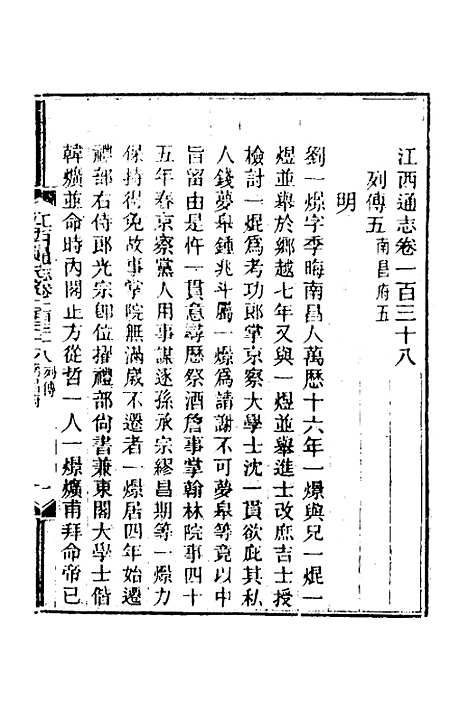 江西通志卷一百三十八
列傳五 南昌府五
明
劉一燝字季晦南昌人萬歷十六年一燝與兄一焜一
煜並舉於鄉越七年又與一煜並舉進士改庶吉士授
檢討一焜爲考功郎掌京察大學士沈一貫欲庇其私
人錢夢皋鍾兆斗屬一燝爲請謝不可夢皋等竟以中
旨留由是忤一貫意尋歷祭酒詹事掌翰林院事四十
五年春京察黨人用事謀逐孫承宗繆昌期等一燝力
保持得免故事掌院無滿嵗不遷者一燝居四年始遷
禮部右侍郎光宗卽位擢禮部尙書兼東閣大學士偕
韓爌並命時內閣止方從哲一人一燝爌甫拜命帝已
江西通志卷一百三十八 列傳 一